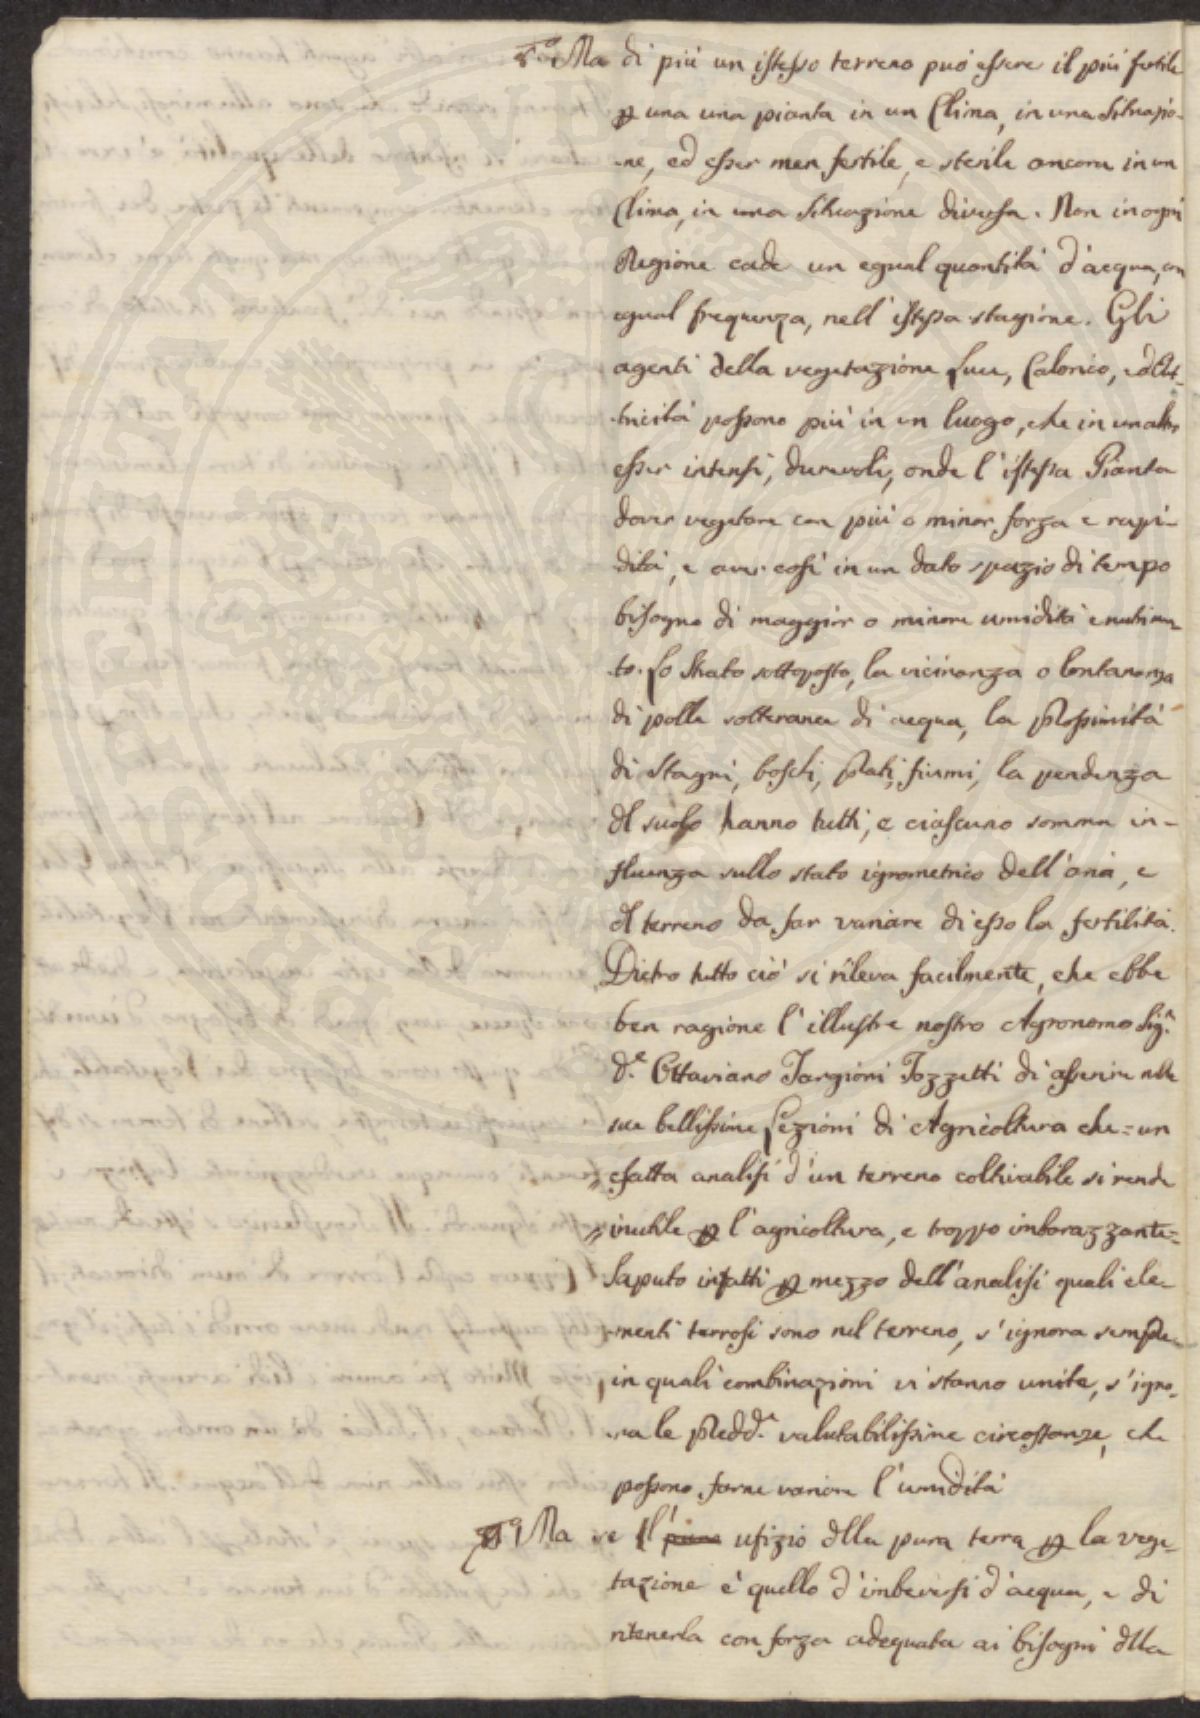 5.° Ma di più un istesso terreno può essere il più fertile
p una una pianta in un Clima, in una Situazio-
-ne, ed esser men fertile, e sterile ancora in un
Clima, in una Situazione diversa. Non in ogni
Regione cade un egual quantità d'acqua, con
egual frequenza, nell'istessa stagione. Gli
agenti della vegetazione Luce, Calorico, ed Elet-
-tricità possono più in un luogo, che in un altro
esser intensi, durevoli, onde l'istessa Pianta
dover vegetare con più o minor forza e rapi-
-dità, e aver così in un dato spazio di tempo
bisogno di maggior o minore umidità e nutrimen-
-to. Lo Strato sottoposto, la vicinanza o lontananza
di polle sotteranee di acqua, la Prossimità
di Stagni, boschi, Prati, fiumi, la pendenza
del suolo hanno tutti, e ciascuno somma in-
fluenza sullo stato igrometrico dell'aria, e
del terreno da far variare di esso la fertilità.
Dietro tutto ciò si rileva facilmente, che ebbe
ben ragione l'illustre nostro Agronomo Sig.r
D.e Ottaviano Targioni Tozzetti di asserire nelle
sue bellissime Lezioni di Agricoltura che = un
" esatta analisi d'un terreno coltivabile si rende
" inutile p l'agricoltura, e troppo imbarazzante =
Saputo infatti p mezzo dell'analisi quali ele-
-menti terrosi sono nel terreno, s'ignora sempre
in quali combinazioni vi stanno unite, s'igno-
-ra le Pred.de valutabilissime circostanze, che
possono farne variare l'umidità
Ma se l' ufizio della pura terra p la vege-
tazione è quello d'imbeversi d'acqua, e di
ritenerla con forza adequata ai bisogni della